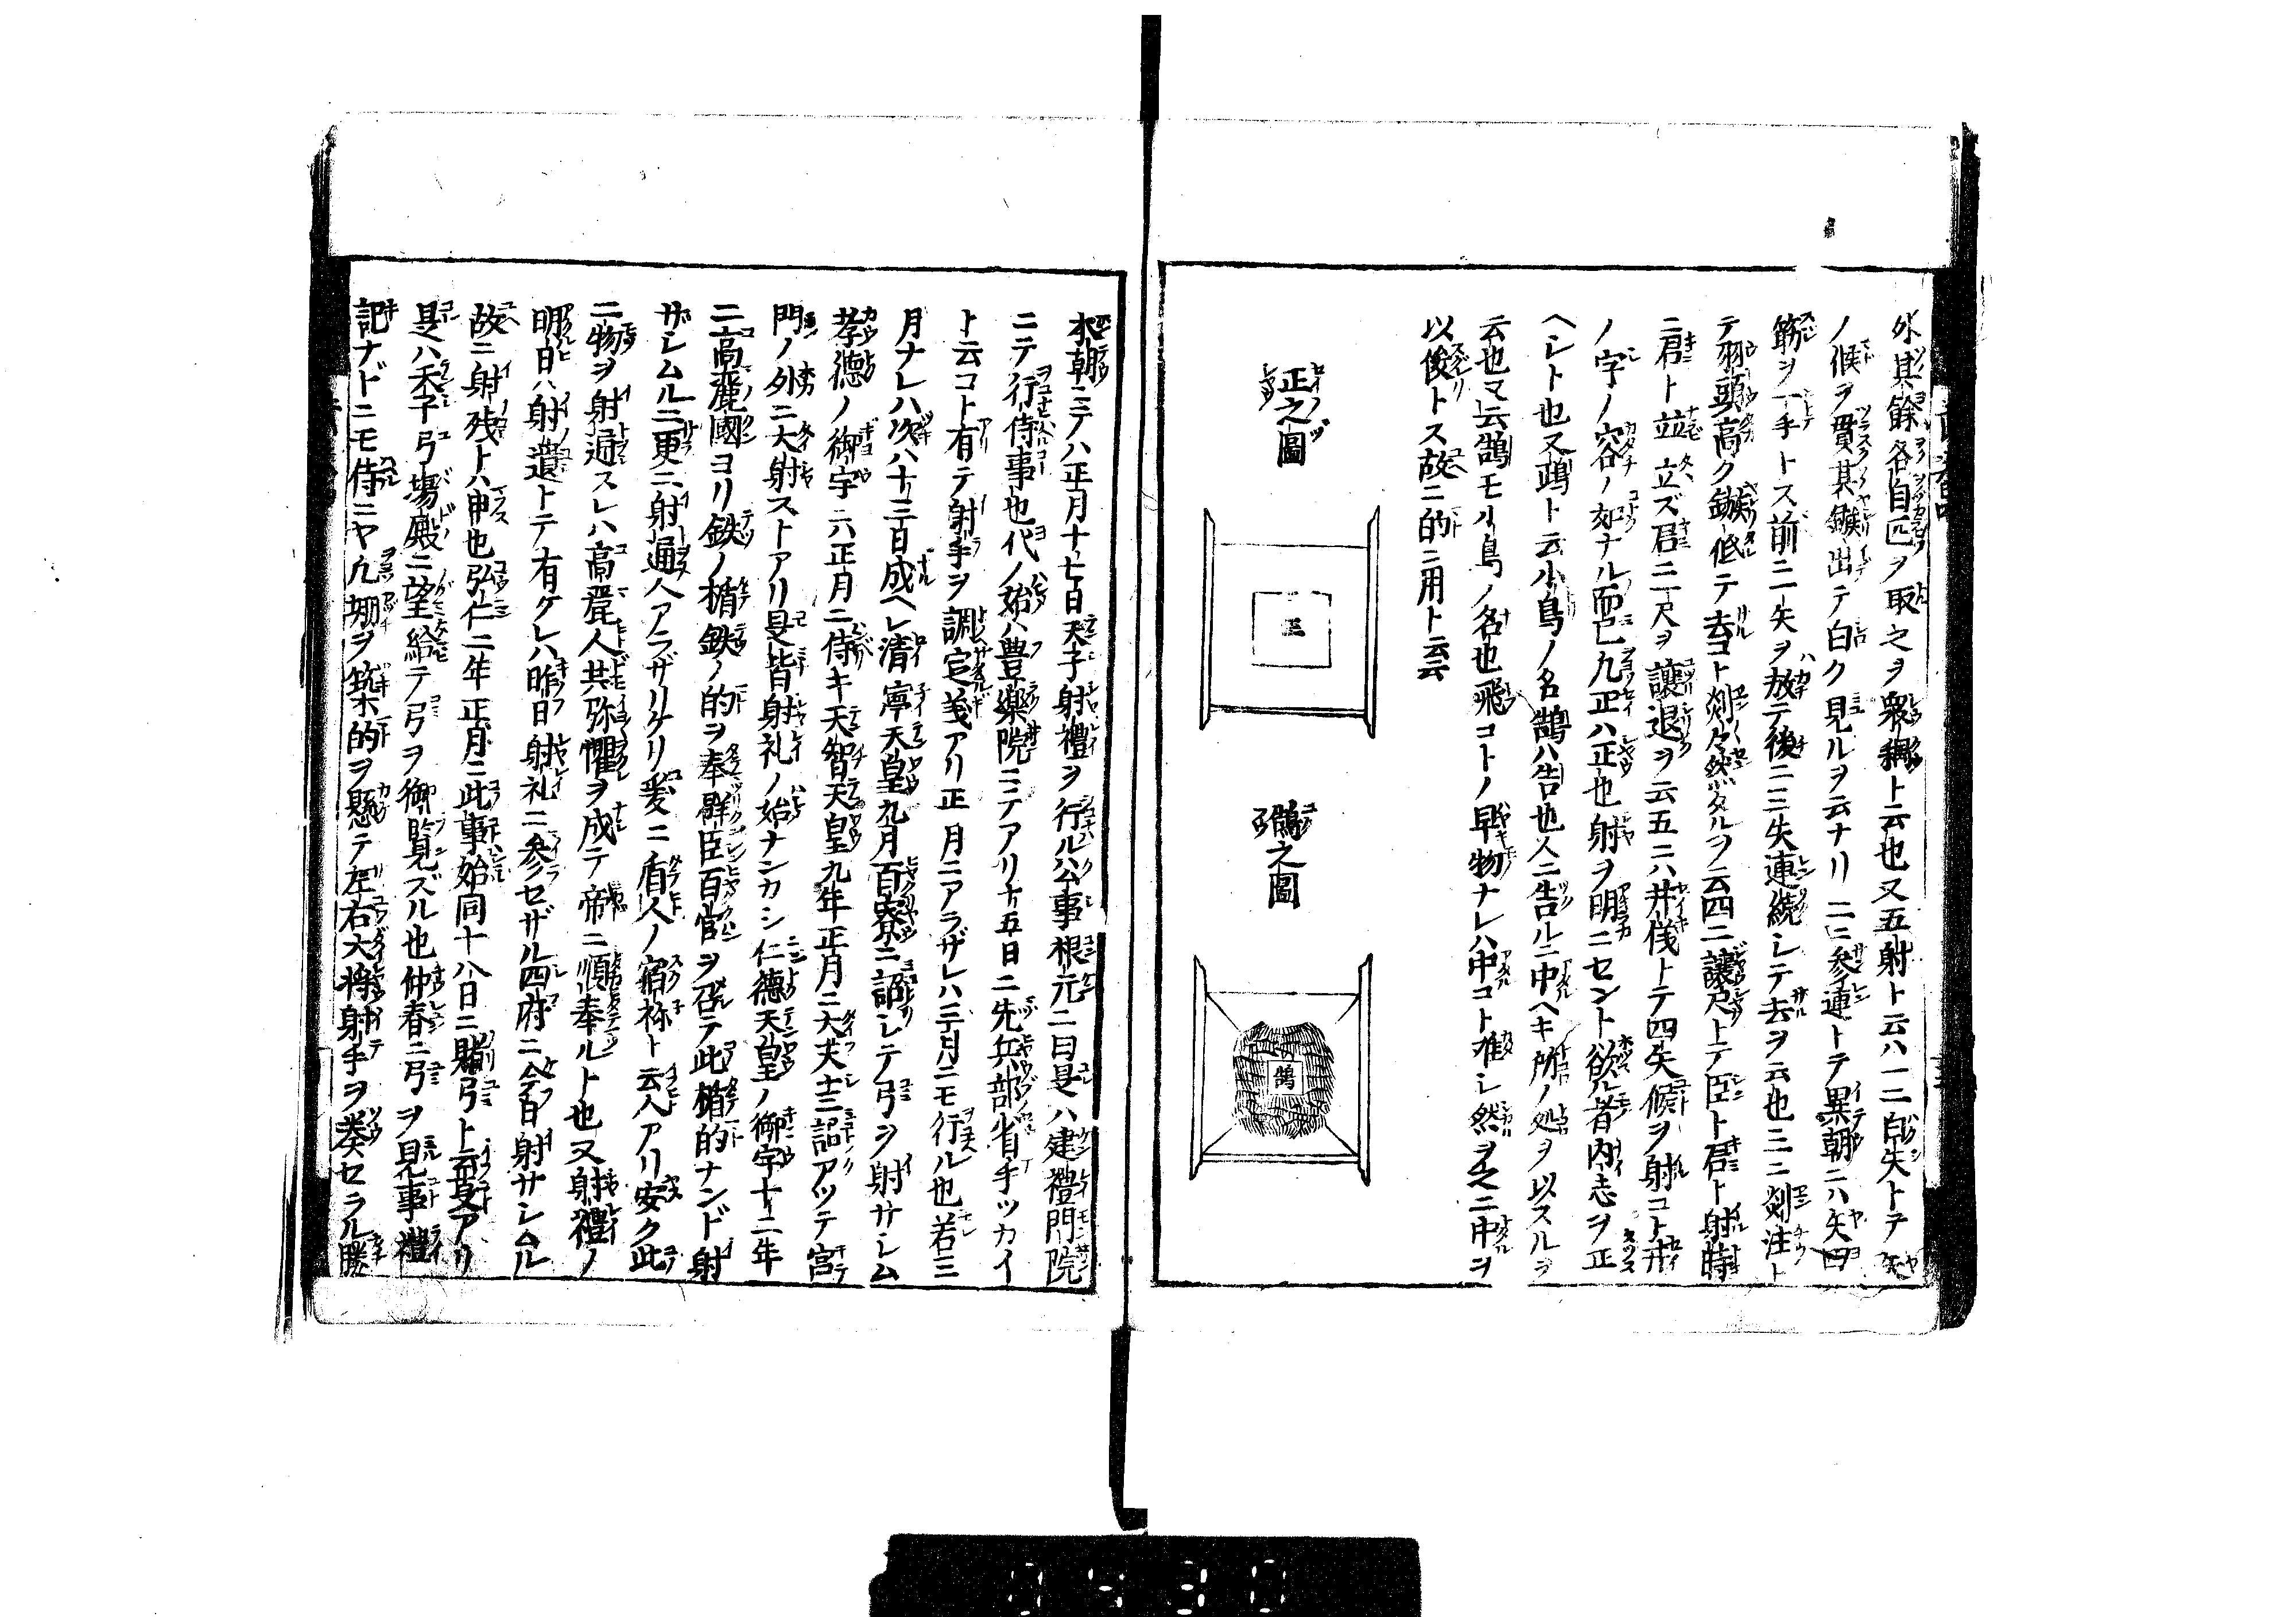 外其餘各自匹ヲ取之ヲ衆耦ト云也又五射ト云ハ一ニ白矢トテ矢
ノ候ヲ貫其鏃出テ白ク見ルヲ云ナリ二ニ参連トテ異朝ニハ矢四
筋ヲ一手トス前ニ一矢ヲ放テ後ニ三矢連続シテ去ヲ云也三ニ剡注ト
テ羽頭高ク鏃低テ去コト剡々然タルヲ云四ニ譲尺トテ臣ト君ト射時
ニ君ト並立ズ君ニ一尺ヲ譲退ヲ云五ニハ井儀トテ四矢候ヲ射コト井
ノ字ノ容ノ如ナル而已凡正ハ正也射ヲ明ニセント欲ル者内志ヲ正
ヘシト也又鵄ト云小鳥ノ名鵠ハ告也人ニ告ルニ中ヘキ所ノ処ヲ以スルヲ
云也又云鵠モ小鳥ノ名也飛コトノ早物ナレハ中コト難シ然ヲ之ニ中ヲ
以俊トス故ニ的ニ用ト云云
正之圖
正
鵠之圖
鵠
本朝ニテハ正月十七日天子射禮ヲ行ル公事根元ニ曰是ハ建禮門院
ニテ行侍事也代ノ始ハ豊樂院ニテアリ十五日ニ先兵部省手ツカイ
ト云コト有テ射手ヲ調定義アリ正月ニアラザレハ三月ニモ行ル也若三
月ナレハ次ハ十三日成ヘシ清寧天皇九月百寮ニ詔シテ弓ヲ射サシム
孝德ノ御宇六正月ニ侍キ天智天皇九年正月ニ大夫士ニ詔アッテ宮
門ノ外ニ大射ストアリ是皆射礼ノ始ナンカシ仁德天皇ノ御宇十二年
ニ高麗國ヨリ鉄ノ楯鉄ノ的ヲ奉群臣百官ヲ召テ此楯的ナンド射
サシムルニ更ニ射通人アラザリケリ爰ニ盾人ノ宿祢ト云人アリ安ク此
二物ヲ射通スレハ高麗人共弥懼ヲ成テ帝ニ順奉ルト也又射禮ノ
明日ハ射遺トテ有ケレハ昨日射礼ニ参セザル四府ニ今日射サシムル
故ニ射残トハ申也弘仁二年正月ニ此事始同十八日ニ賭弓ト云事アリ
是ハ天子弓場殿ニ望給テ弓ヲ御覧ズル也仲春ニ弓ヲ見事禮
記ナドニモ侍ニヤ凡堋ヲ築的ヲ懸テ左右大将射手ヲ奏セラル勝